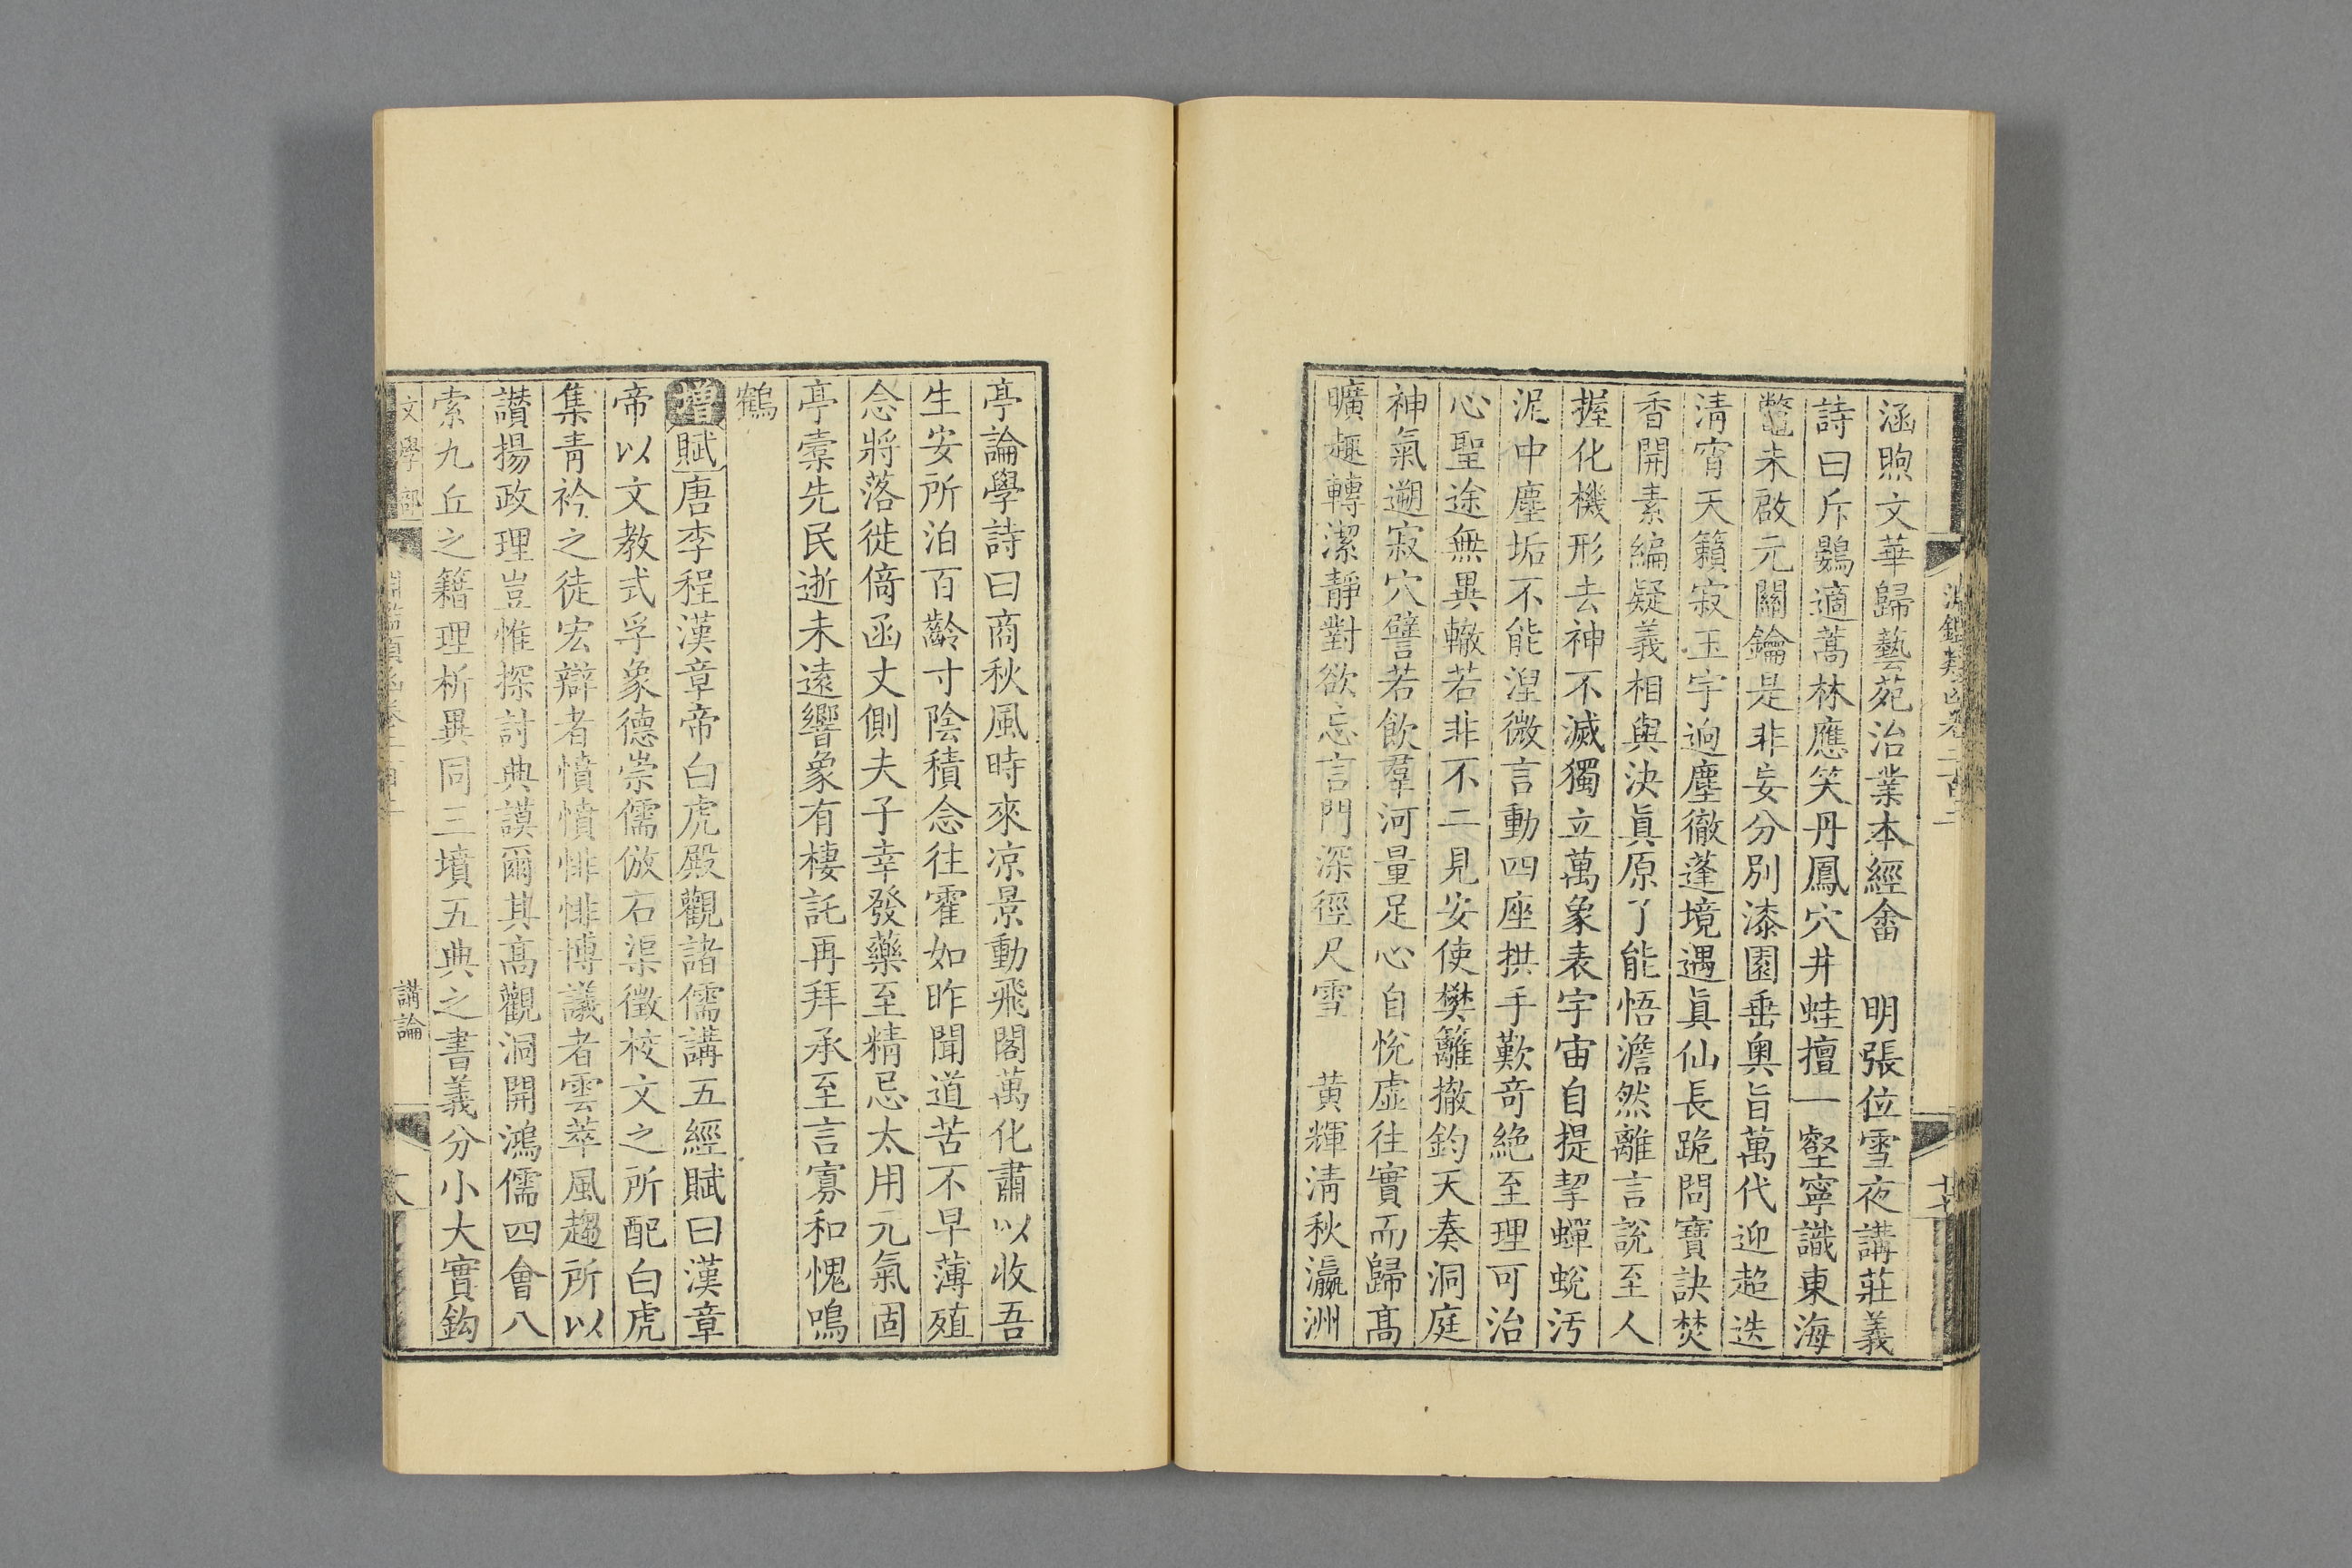 涵煦文華歸藝苑治業本經畬　明張位雪夜講莊義
詩曰斥鷃適蒿林應笑丹鳳穴井蛙擅一壑寧識東海
鼈未啟元關鑰是非妄分別漆園垂奧旨萬代迎超迭
清宵天籟寂玉宇逈塵徹蓬境遇眞仙長跪問寶訣焚
香開素編疑義相與決眞原了能悟澹然離言說至人
握化機形去神不滅獨立萬象表宇宙自提挈蟬蛻汚
泥中塵垢不能湼微言動四座拱手歎奇絶至理可治
心聖途無異轍若非不二見安使樊籬撤鈞天奏洞庭
神氣遡寂穴譬若飲羣河量足心自悅虛往實而歸髙
曠趣轉潔靜對欲忘言門深徑尺雪　黃輝清秋瀛洲
亭論學詩曰商秋風時來凉景動飛閣萬化肅以收吾
生安所泊百齡寸陰積念往霍如昨聞道苦不早薄殖
念將落徙倚函丈側夫子幸發藥至精忌太用元氣固
亭橐先民逝未遠響象有棲託再拜承至言寡和愧鳴
鶴
增賦唐李程漢章帝白虎殿觀諸儒講五經賦曰漢章
帝以文教式孚象德崇儒倣石渠徵校文之所配白虎
集靑衿之徒宏辯者憤憤悱悱博議者雲萃風趨所以
讃揚政理豈惟探討典謨爾其高觀洞開鴻儒四會八
索九丘之籍理析異同三墳五典之書義分小大實鈎
文學部
講論